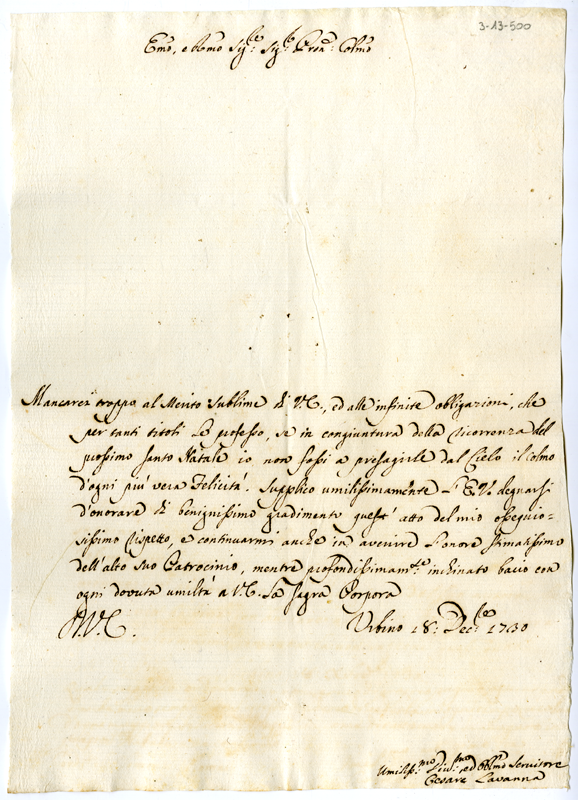 3-13-500
Emo, e Rmo Sig:re Sig:re Pron: Colmo
Mancarei troppo al Merito sublime di V.E., ed alle infinite obligazioni, che
per tanti titoli Le professo, se in congiuntura della ricorrenza del
prossimo santo Natale io non fossi a presagirle dal Cielo il colmo
d'ogni piu' vera Felicità. Supplico umilissimamente L'E.V. degnarsi
d'onorare di benignissimo gradimento quest' atto del mio ossequio-
sissimo rispetto, e continuarmi anche in avenire l'onore stimatissimo
dell'alto suo Patrocinio, mentre profondissimam:te inchinato bacio con
ogni dovuta umiltà a V.E. La sagra Porpora
Di V.E.
Urbino 18: Dec:re 1730
Umiliss:mo Div:mo ed Obl:mo Servitore
Cesare Lavanna